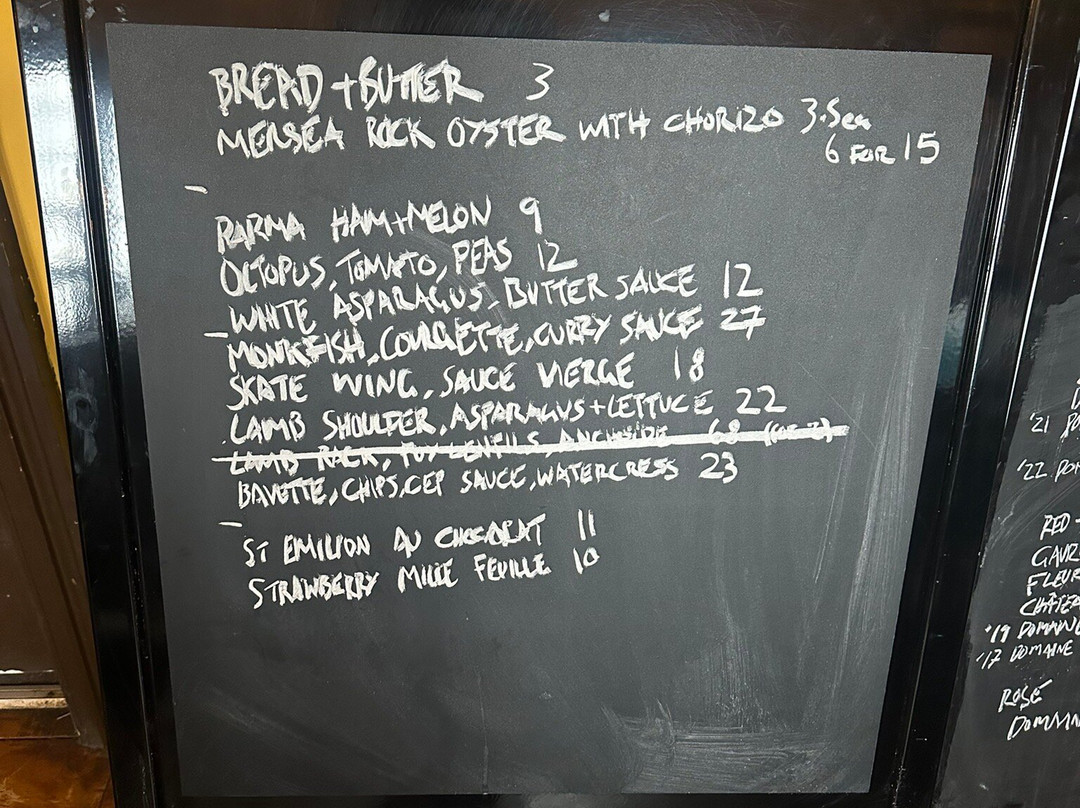 BREAD + BUTTER 3
MERSEA ROCK OYSTER WITH CHORIZO 3.5ea
6 FOR 15
PARMA HAM + MELON 9
OCTOPUS, TOMATO, PEAS 12
WHITE ASPARAGUS, BUTTER SAUCE 12
MONKFISH, COURGETTE, CURRY SAUCE 27
SKATE WING, SAUCE VIERGE 18
LAMB SHOULDER, ASPARAGUS + LETTUCE 22
LAMB RACK, PUY LENTILS, ANCHOÏADE 68 (FOR 2)
BAVETTE, CHIPS, CEP SAUCE, WATERCRESS 23
ST EMILION AU CHOCOLAT 11
STRAWBERRY MILLE FEUILLE 10
'21
'22
RED -
'19 DOMAINE
'17 DOMAINE
ROSÉ